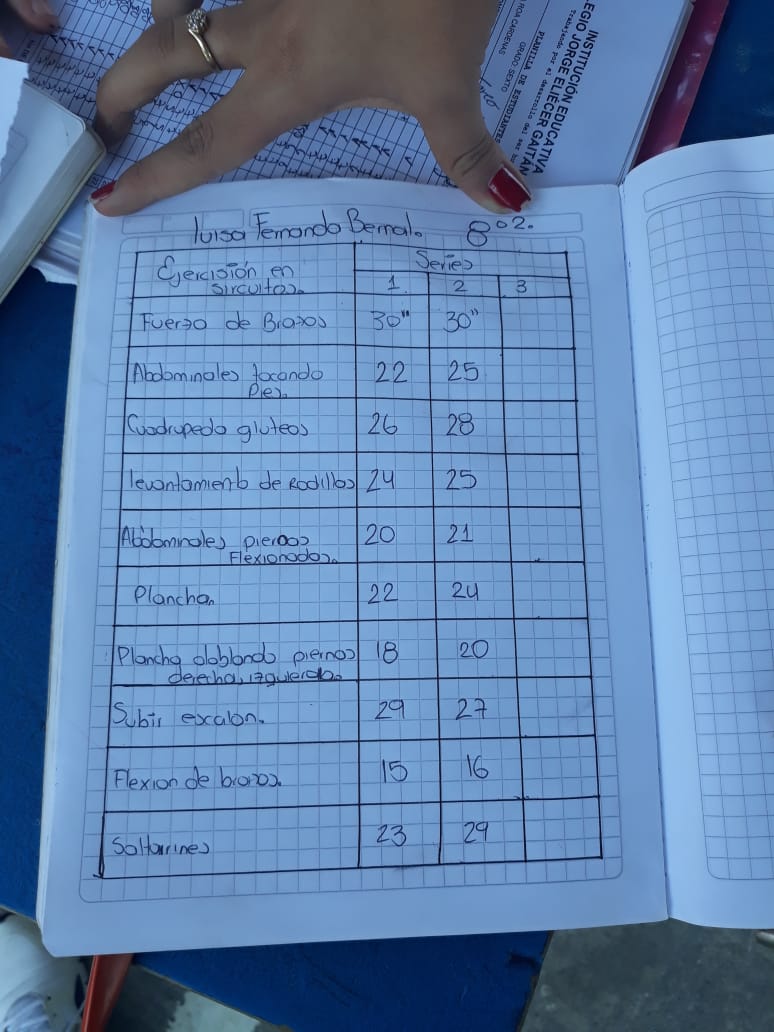 INSTITUCIÓN EDUCATIVA
EGIO JORGE ELIECER GAITÁN
Trabajando por el desarrollo del ser
PLANTILLA DE ESTUDIANTE
GRADO SEXTO
ROA CARDENAS
luisa Fernanda Bernal. 8°2.
Ejercisión en sircuitos.
Series
1. 2 3
Fuerza de Brazos 30" 30"
Abdominales tocando Pies. 22 25
Cuadrupedo gluteos 26 28
levantamiento de Rodillas 24 25
Abdominales piernas Flexionadas. 20 21
Plancha. 22 24
Plancha doblando piernas derecha, izquierda. 18 20
Subir escalon. 29 27
Flexion de brazos. 15 16
Saltarines 23 29